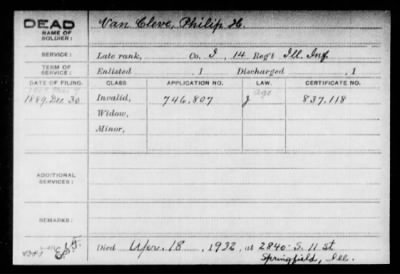 DEAD
NAME OF
SOLDIER:
Van Cleve, Philip H.
SERVICE:
Late rank, Co. I, 14 Reg't Ill. Inf
TERM OF
SERVICE:
Enlisted , 1 Discharged , 1
DATE OF FILING. CLASS. APPLICATION NO. LAW. CERTIFICATE NO.
age
1889, Dec 30 Invalid, 746.807 J 837.118
Widow,
Minor,
ADDITIONAL
SERVICES:
REMARKS:
Died Apr. 18, 1932, at 2840-S. 11 St
Springfield, Ill.